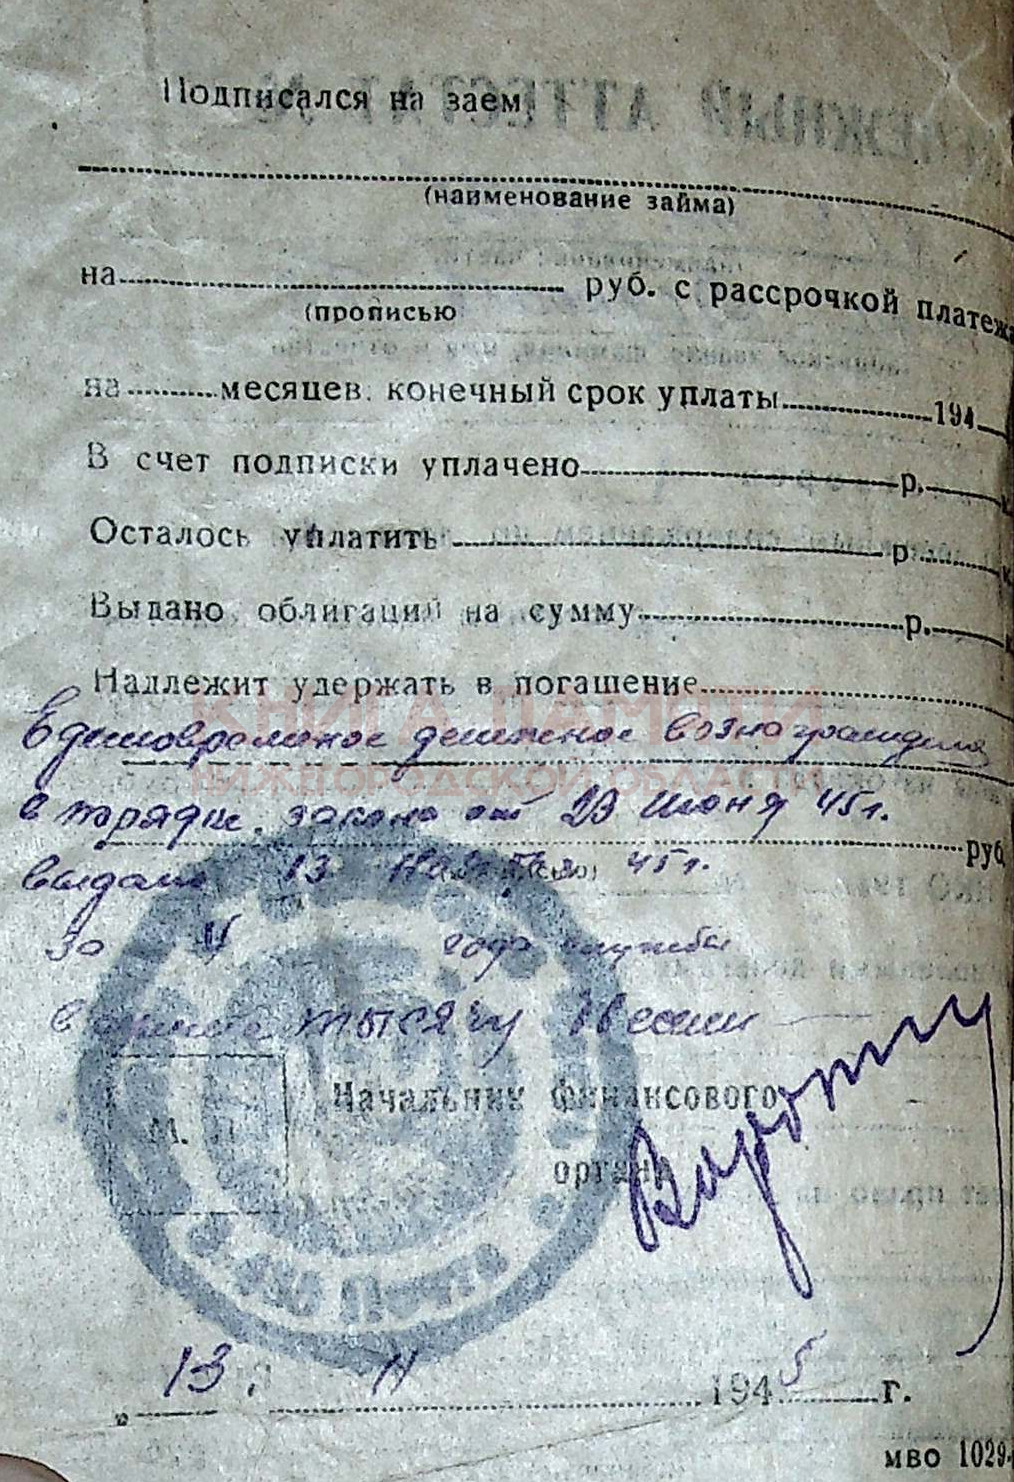 Подписался на заем
(наименование займа)
на руб. с рассрочкой платежа
(прописью
на месяцев. конечный срок уплаты 194
В счет подписки уплачено р. к
Осталось уплатить р. к
Выдано облигаций на сумму р. к
Надлежит удержать в погашение
КНИГА ПАМЯТИ
Единовременное денежное вознаграждение
НИЖЕГОРОДСКОЙ ОБЛАСТИ
в порядке закона от 23 июня 45г.
руб
выдано 13 Ноября 45г.
за 4 года службы
в сумме тысячу
Начальник финансового
М. П.
органа
13. 11 1945 г.
МВО 1029